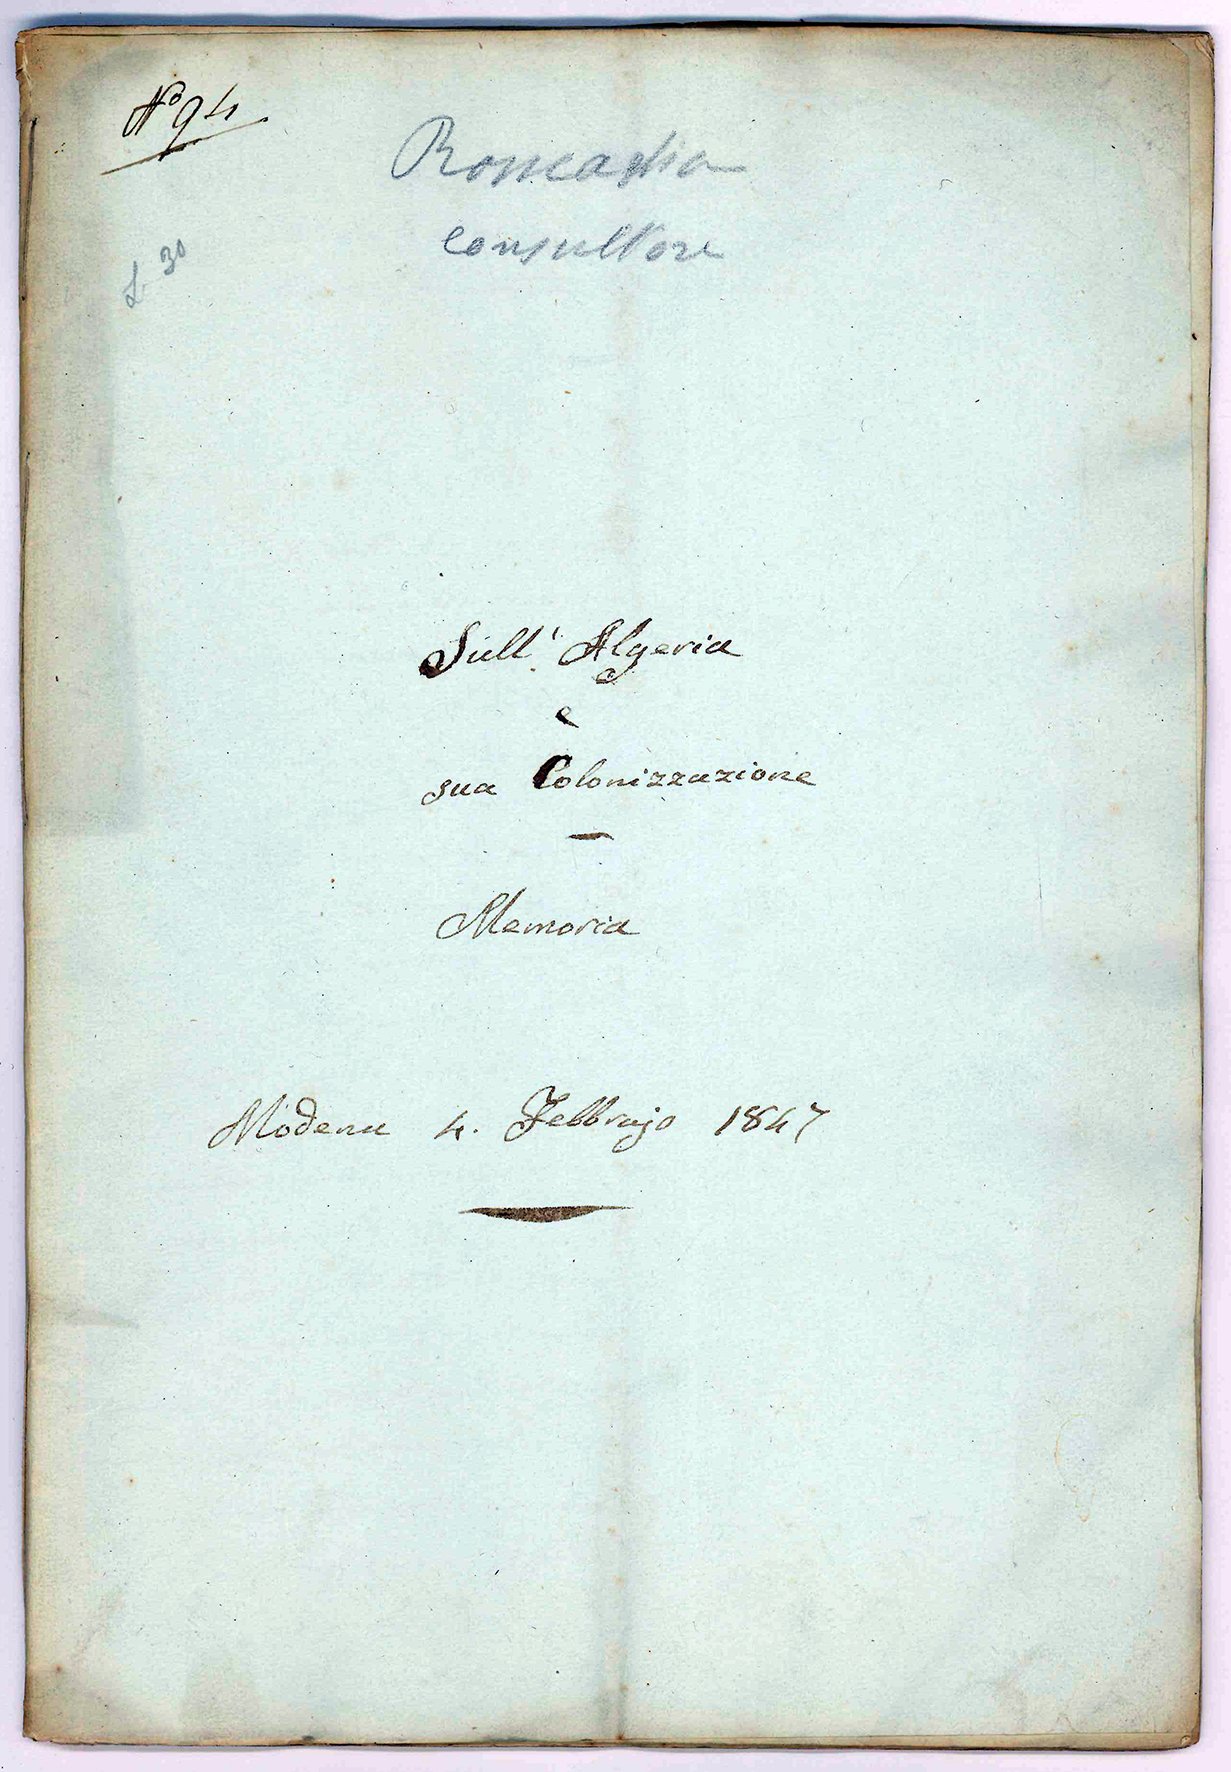 N° 94
Roncaglia
consultore
L 30
Sull' Algeria
e
sua Colonizzazione
Memoria
Modena 4. Febbrajo 1847